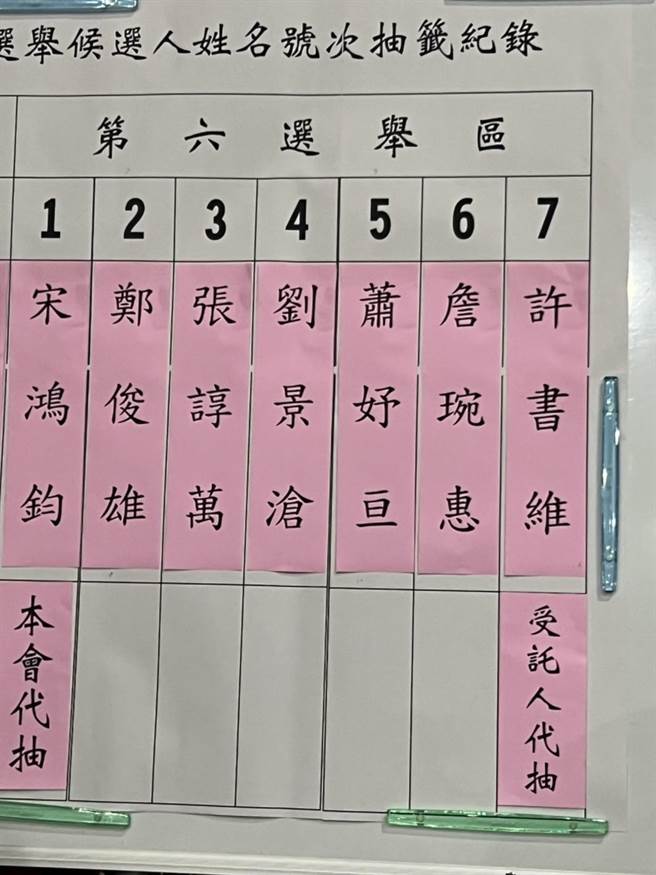 選舉候選人姓名號次抽籤紀錄
第六選舉區
1 2 3 4 5 6 7
宋鴻鈞
鄭俊雄
張諄萬
劉景滄
蕭妤亘
詹琬惠
許書維
本會代抽
受託人代抽